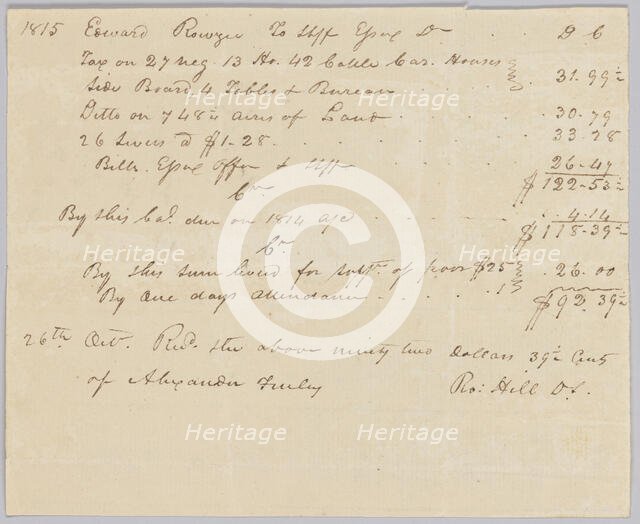 1815 Edward Rowzee To Shff Essex Dr . D C
Tax on 27 neg. 13 Ho. 42 Cattle Car. Houses
Side Board 4 Tables & Bureau . . . 31.99½
Ditto on 748½ acres of Land . . . 30.79
26 Levies @ $1.28 . . . 33.28
Bills. Essex Offn & Shff . . . 26.47
$122.53½
Cr.
By this bal. due on 1814 a/c . . . 4.14
$118.39½
Cr.
By this sum levied for suppt. of poor $25
By one days attendance . . . 1 26.00
$92.39½
26th Octr. Recd. the above ninety two dollars 39½ Cents
of Alexander Finley Ro: Hill D.S.
Heritage Heritage Heritage
Heritage Heritage
Heritage Heritage Heritage
©